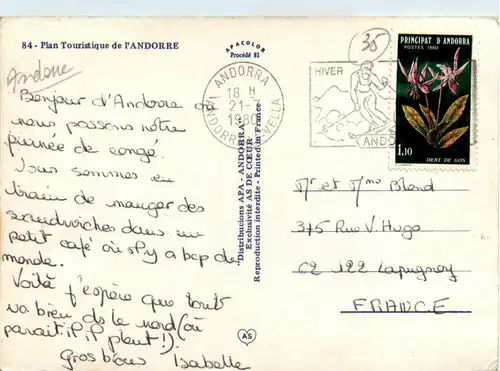 84 - Plan Touristique de l'ANDORRE
APACOLOR
Procédé 81
Andorre
Bonjour d'Andorre où
nous passons notre
journée de congé.
Nous sommes en
train de manger des
sandwiches dans un
petit café où il y a bcp de
monde.
Voilà j'espère que tout
va bien ds le nord (où
parait-il, il pleut !).
Gros bisous Isabelle
"Distribucions APA - ANDORRA"
Exclusivité AS DE CŒUR
Reproduction interdite - Printed in France
AS
18 H
21-
1980
ANDORRA
ANDORRA VELLA
HIVER
AND
35
PRINCIPAT D'ANDORRA
POSTES 1980
1,10
DENT DE GOS
Mr et Mme Blond
375 Rue V. Hugo
62 122 Lapugnoy
FRANCE